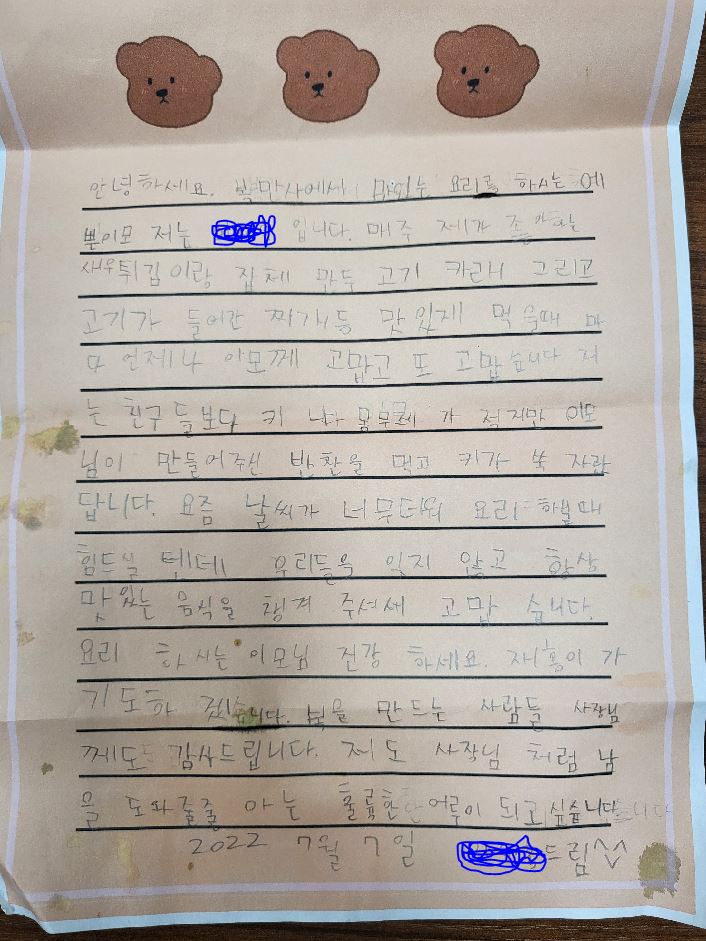 안녕하세요. 복만사에서 맛있는 요리를 하시는 예
쁜이모 저는 입니다. 매주 제가 좋아하는
새우튀김이랑 잡체 만두 고기 카래 그리고
고기가 들어간 찌개등 맛있게 먹을때 마
다 언제나 이모께 고맙고 또 고맙습니다 저
는 친구들보다 키 나 몸무게 가 적지만 이모
님이 만들어주신 반찬을 먹고 키가 쑥 자랍
답니다. 요즘 날씨가 너무더워 요리 하실때
힘드실 텐데 우리들을 잊지 않고 항상
맛있는 음식을 챙겨 주셔서 고맙 습니다.
요리 하시는 이모님 건강 하세요. 재홍이 가
기도하 겠습니다. 복을 만드는 사람들 사장님
께도 감사드립니다. 저도 사장님 처럼 남
을 도와줄줄 아는 훌륭한 어루이 되고싶습니다
2022 7월 7일 드림^^